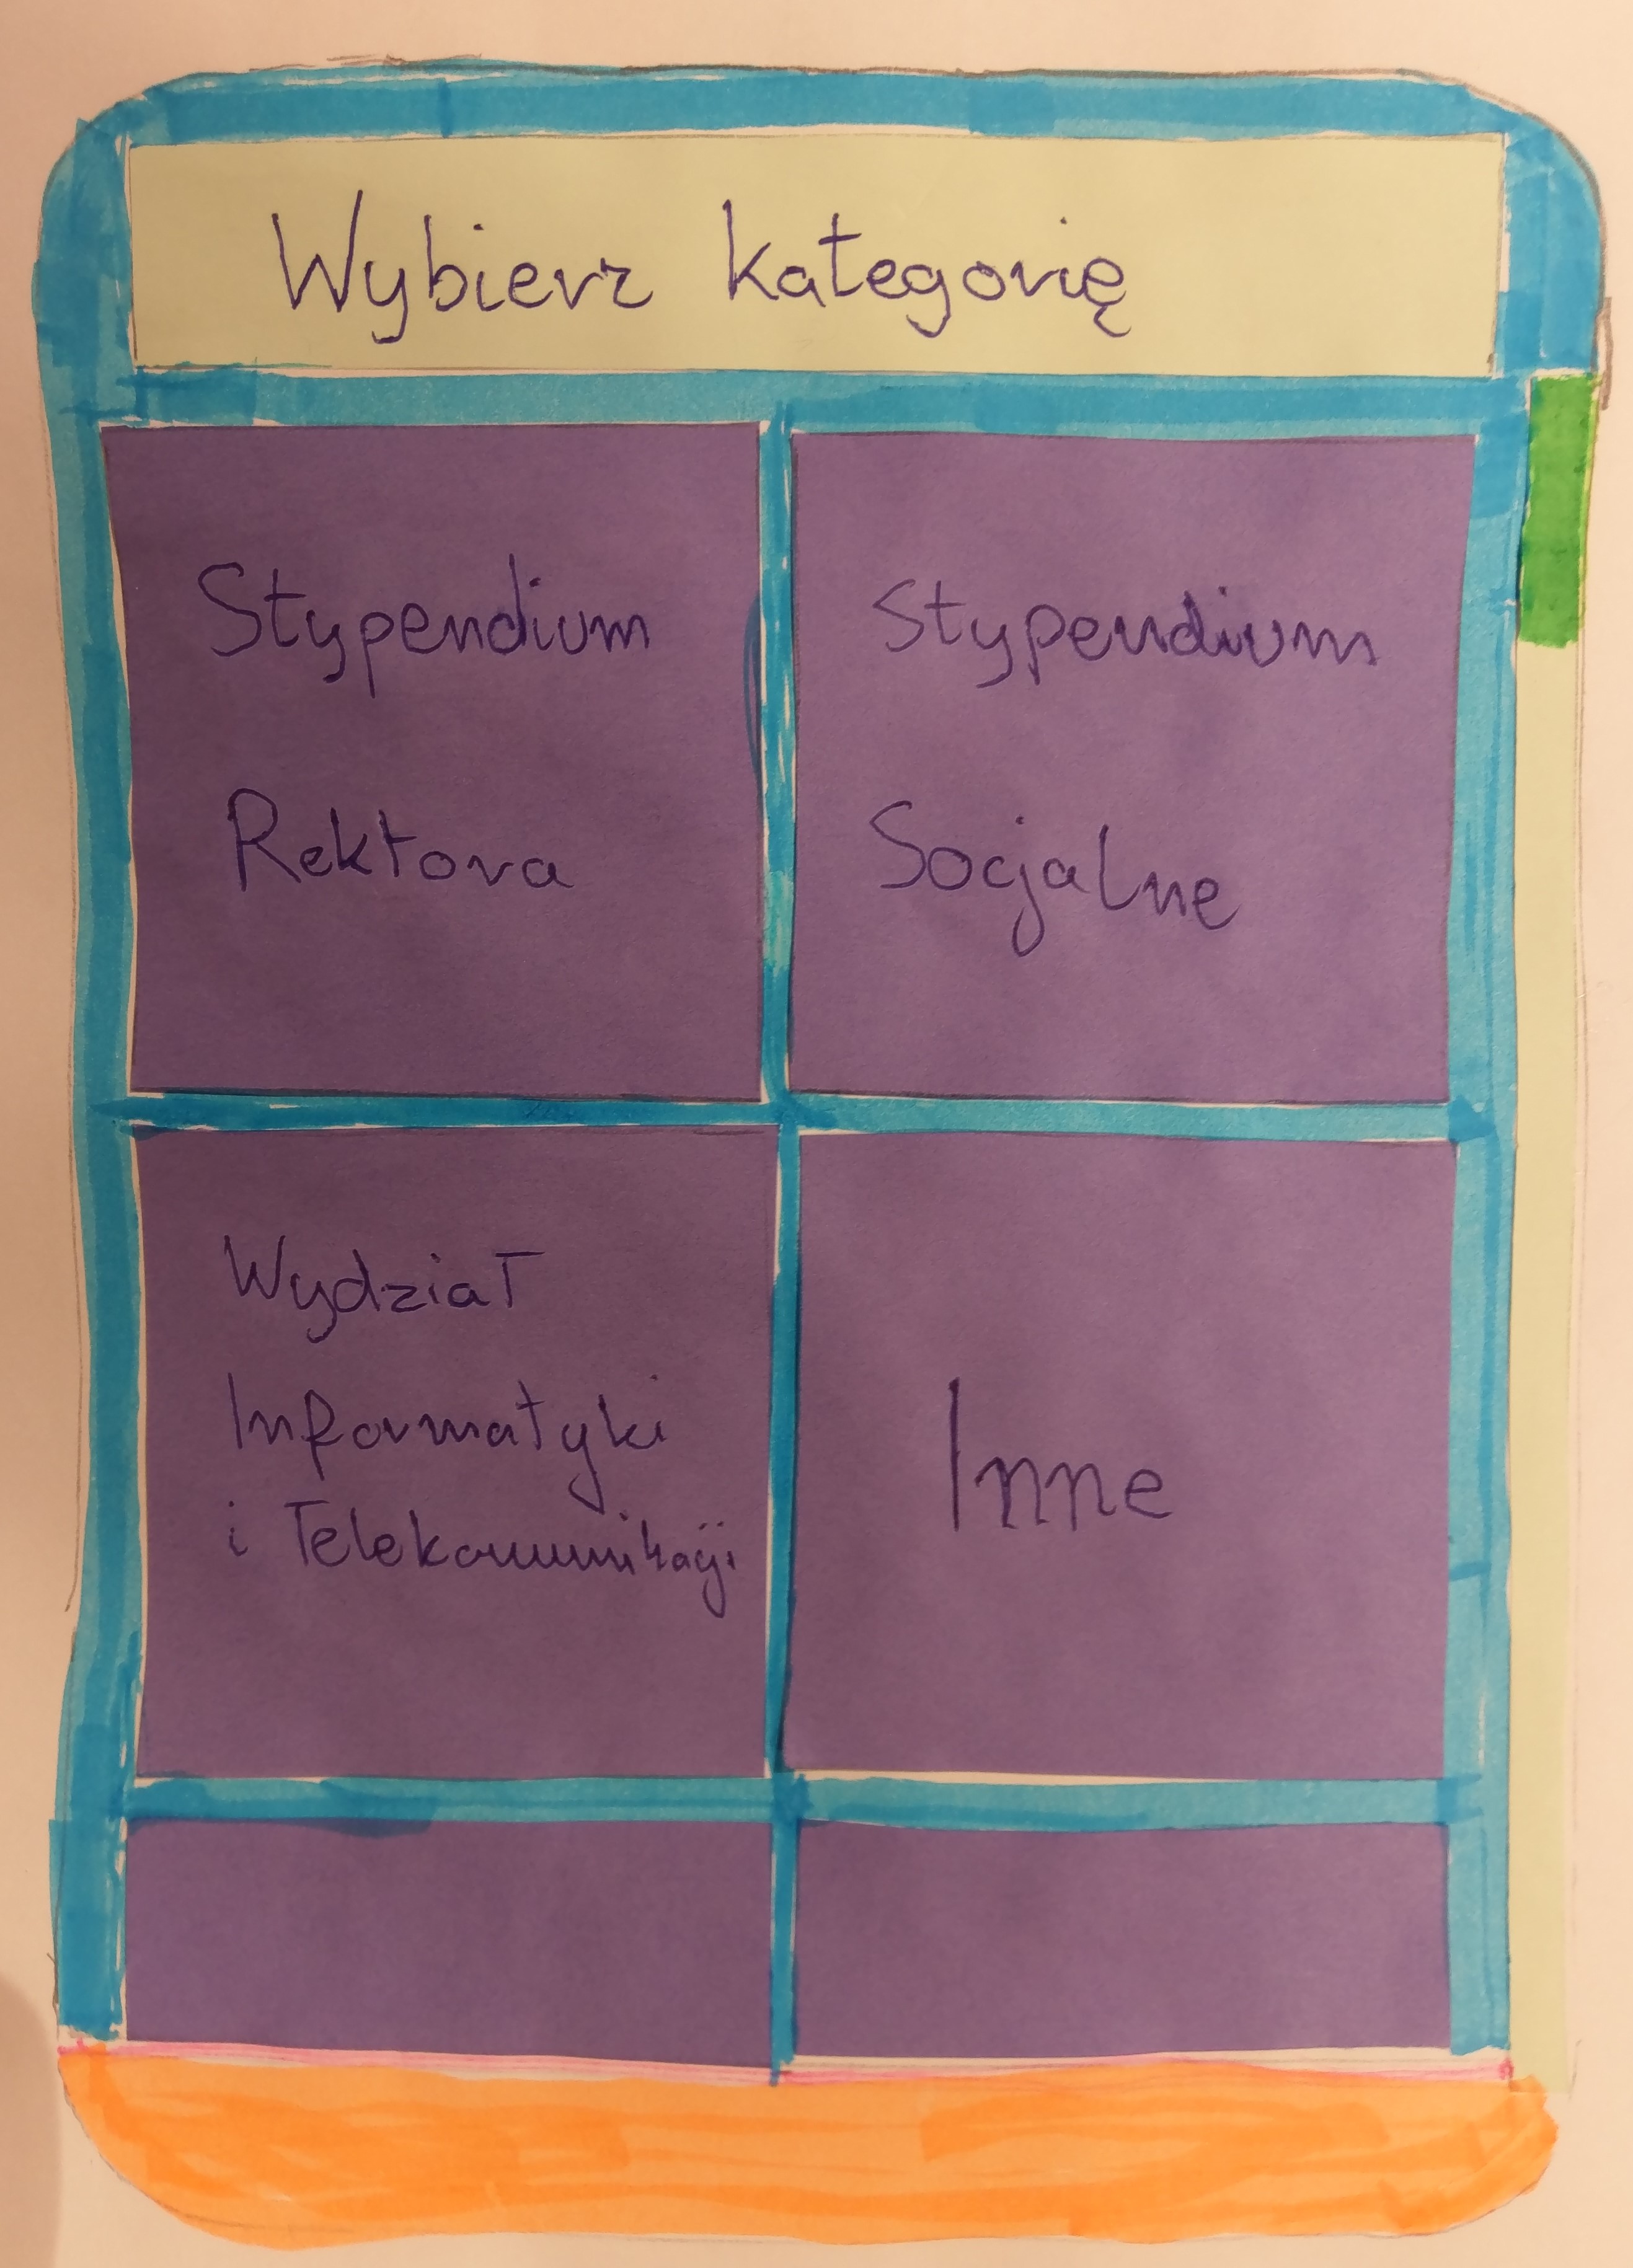 Wybierz kategorię
Stypendium
Rektora
Stypendium
Socjalne
Wydział
Informatyki
i Telekomunikacji
Inne